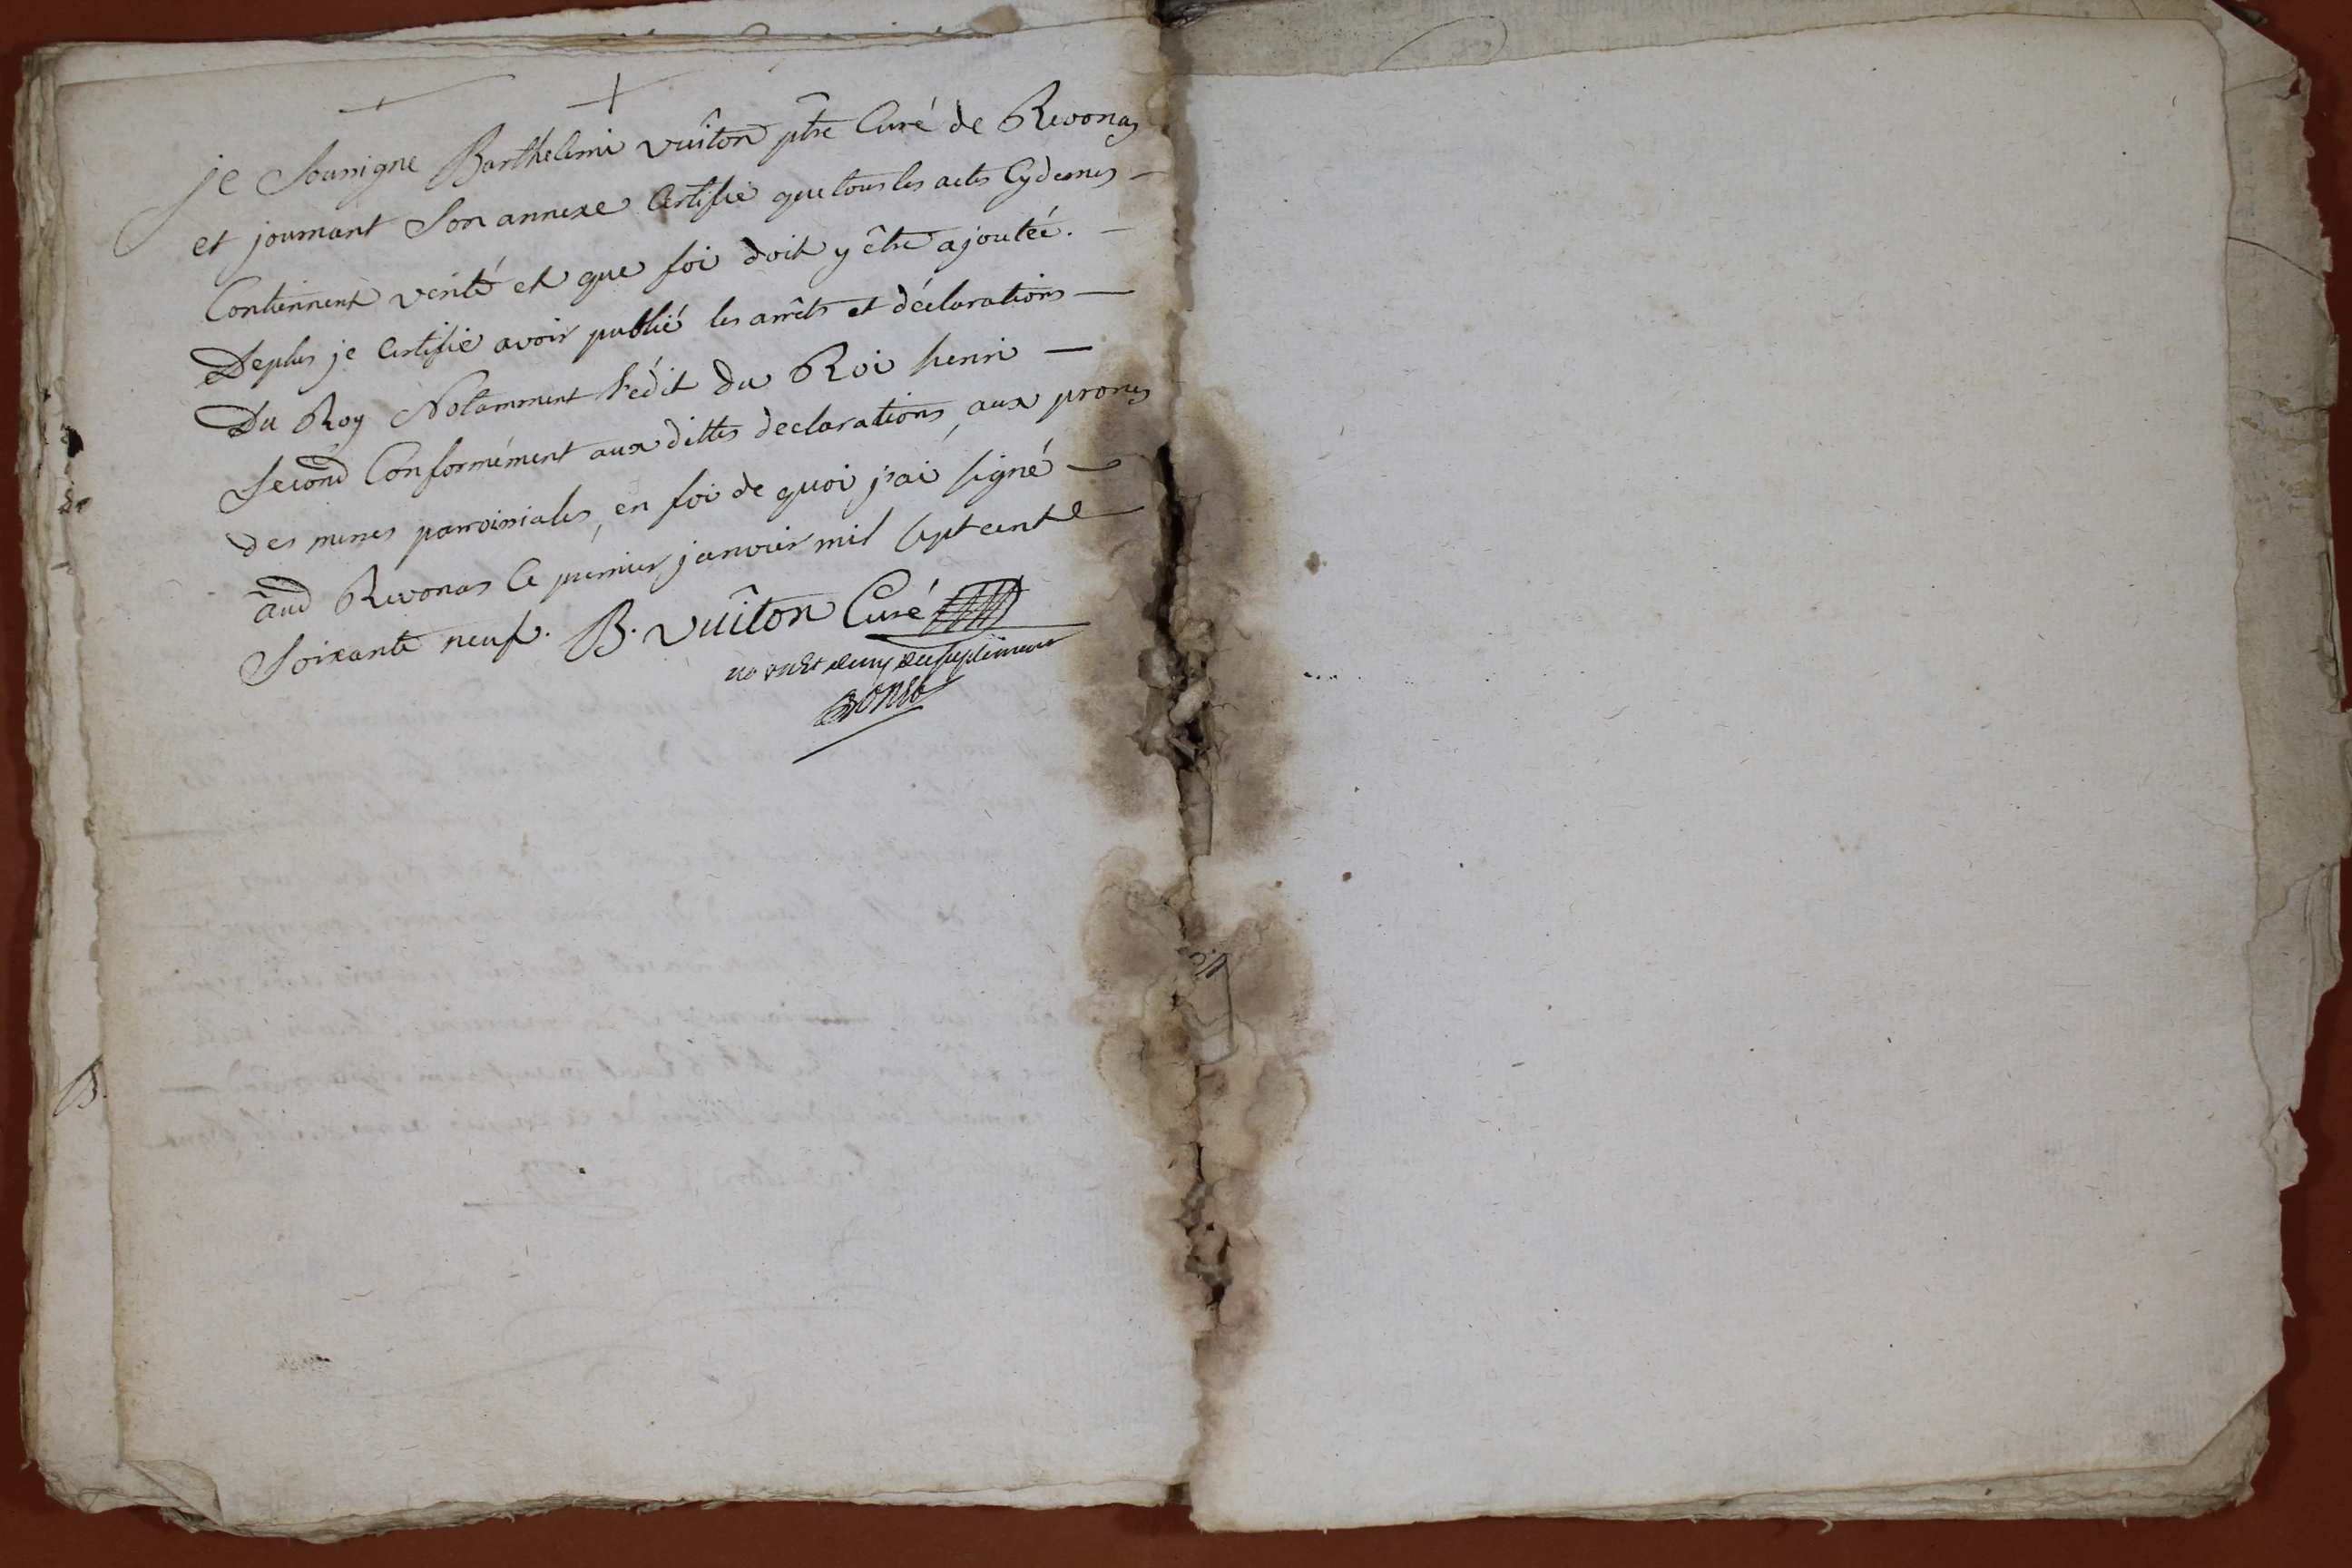 je Soussigne Barthelemi vuîton ptre Curé de Revonas
et journant Son annexe Certifie que tous les actes Cydesus
Contiennent verité et que foi doit y être ajoutée.
Deplus je Certifie avoir publié les arrêts et déclarations
Du Roy Notamment l'édit du Roi henri
Second Conformément aux dittes declarations, aux prones
des messes parroissiales, en foi de quoi j'ai signé
aud Revonas le premier janvier mil sept cent
Soixante neuf. B. vuîton Curé